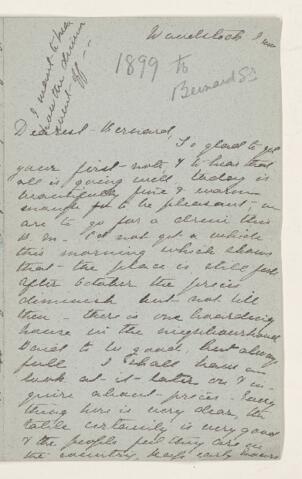 Woodstock Inn
1899 to
Bernard S
I want to hear
how the dinner
went off -
Dearest Bernard,
So glad to get
your first note & to hear that
all is going well. Today is
beautifully fine & warm
enough to be pleasant, we
are to go for a drive this
a.m. Could not get a vehicle
this morning which shows
that the place is still full
After October the prices
diminish but not till
then - there is one boarding
house in the neighbourhood
said to be good, but always
full I shall have a
look at it later on & in-
quire about prices - Every
thing here is very dear, the
table certainly is very good
& the people feel they are in
the country, keeps early hours